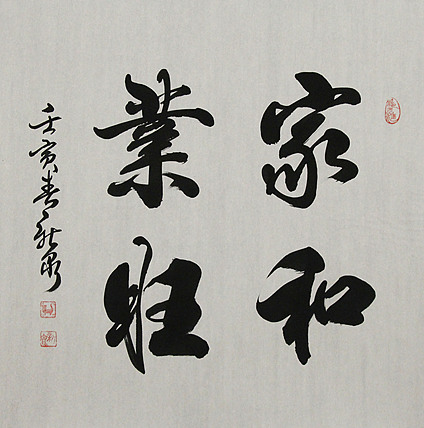 家和
業旺
壬寅春